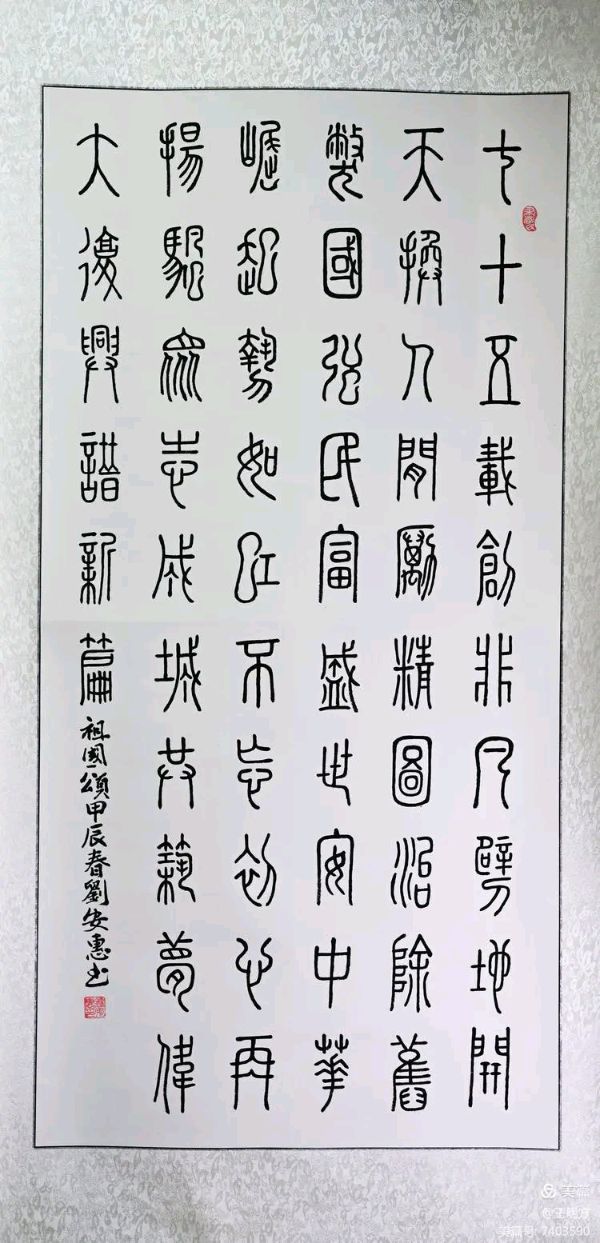 七十五載創非凡劈地開
天換人間勵精圖治除舊
弊國強民富盛世安中華
崛起勢如虹不忘初心再
揚颿眾志成城共築夢偉
大復興譜新篇
祖國頌甲辰春劉安惠书
美篇
美篇号: 7403590